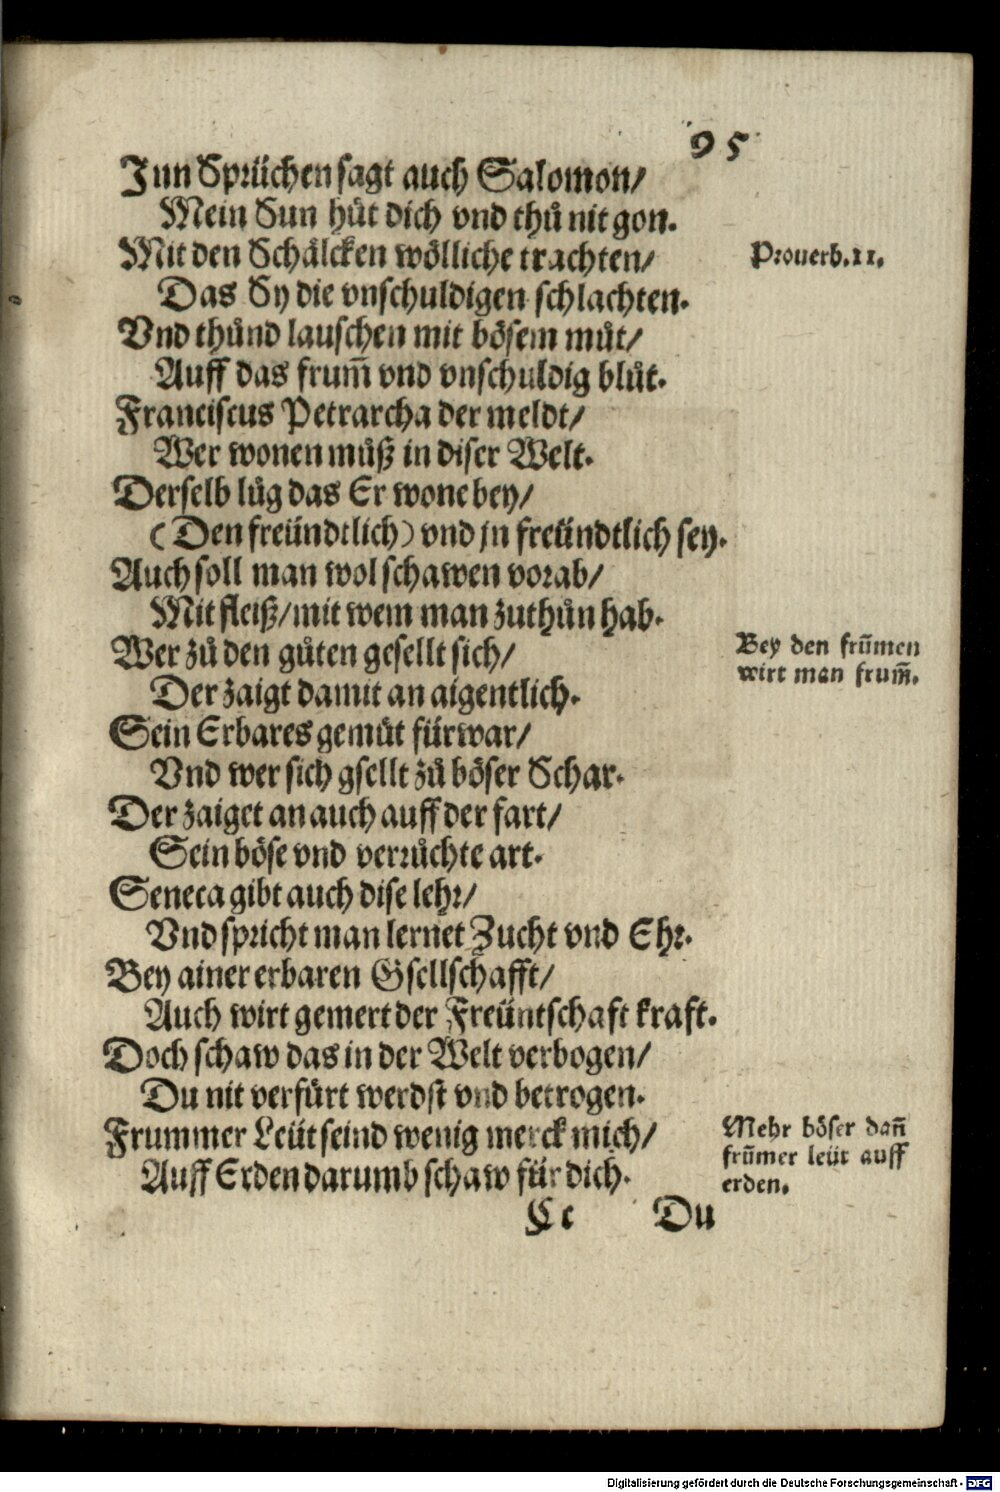 95
Jnn Sprüchen sagt auch Salomon/
Mein Sun hůt dich vnd thů nit gon.
Mit den Schälcken wölliche trachten/
Prouerb.11.
Das Sy die vnschuldigen schlachten.
Vnd thůnd lauschen mit bösem můt/
Auff das frum̃ vnd vnschuldig blůt.
Franciscus Petrarcha der meldt/
Wer wonen můß in diser Welt.
Derselb lůg das Er wone bey/
(Den freündtlich) vnd jn freündtlich sey.
Auch soll man wol schawen vorab/
Mit fleiß/mit wem man zuthůn hab.
Wer zů den gůten gesellt sich/
Bey den frũmen
wirt man frum̃.
Der zaigt damit an aigentlich.
Sein Erbares gemůt fürwar/
Vnd wer sich gsellt zů böser Schar.
Der zaiget an auch auff der fart/
Sein böse vnd verrůchte art.
Seneca gibt auch dise lehr/
Vnd spricht man lernet Zucht vnd Ehr.
Bey ainer erbaren Gsellschafft/
Auch wirt gemert der Freüntschaft kraft.
Doch schaw das in der Welt verbogen/
Du nit verfürt werdst vnd betrogen.
Frummer Leüt seind wenig merck mich/
Auff Erden darumb schaw für dich.
Mehr böser dañ
frũmer leüt auff
erden.
Cc Du
Digitalisierung gefördert durch die Deutsche Forschungsgemeinschaft - DFG